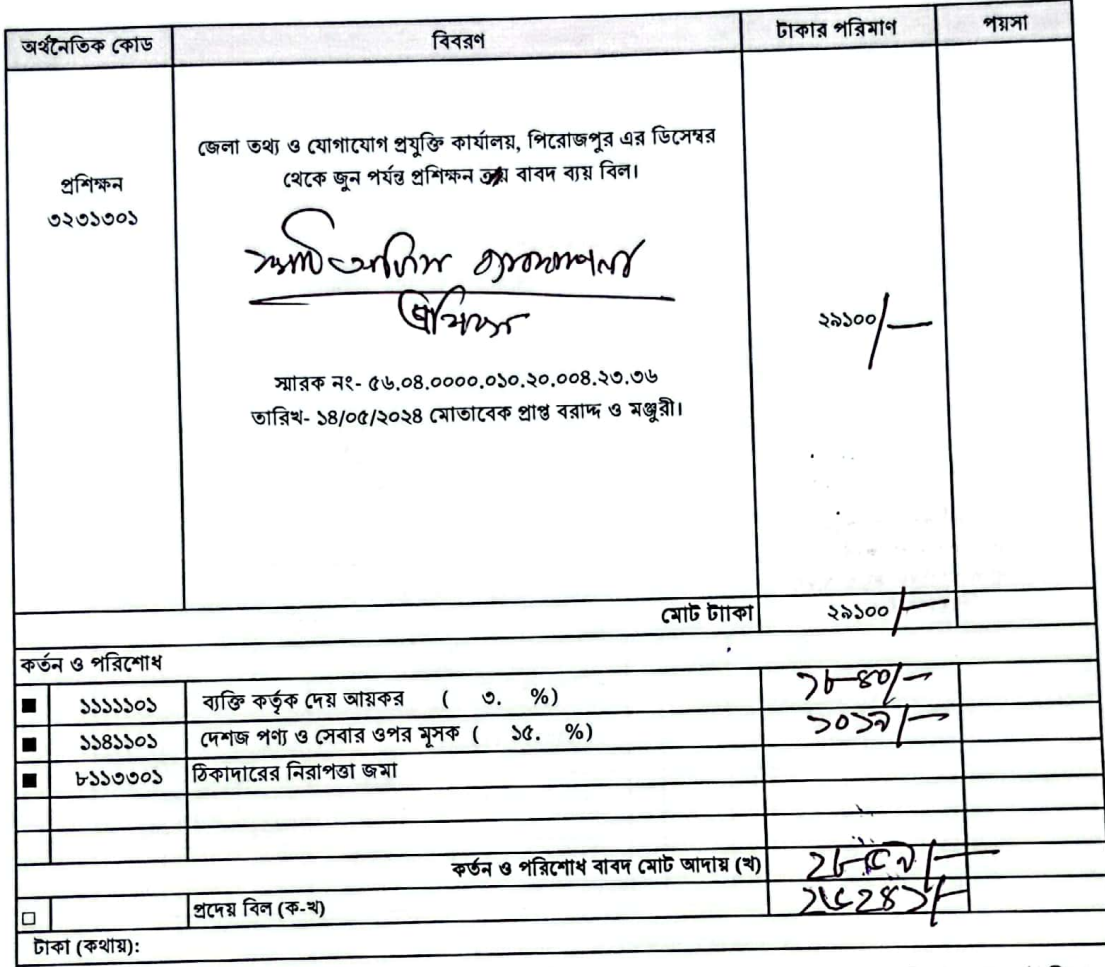 অর্থনৈতিক কোড বিবরণ টাকার পরিমাণ পয়সা
জেলা তথ্য ও যোগাযোগ প্রযুক্তি কার্যালয়, পিরোজপুর এর ডিসেম্বর
প্রশিক্ষন
৩২৩১৩০১
থেকে জুন পর্যন্ত প্রশিক্ষন বাবদ ব্যয় বিল।
স্মার্ট অফিস ব্যবস্থাপনা
২৯১০০/—
স্মারক নং- ৫৬.০৪.০০০০.০১০.২০.০০৪.২৩.৩৬
তারিখ- ১৪/০৫/২০২৪ মোতাবেক প্রাপ্ত বরাদ্দ ও মঞ্জুরী।
মোট টাাকা ২৯১০০/—
কর্তন ও পরিশোধ
১১১১১০১ ব্যক্তি কর্তৃক দেয় আয়কর ( ৩. %) ১৮৪০/—
১১৪১১০১ দেশজ পণ্য ও সেবার ওপর মূসক ( ১৫. %) ১০১৯/—
৮১১৩৩০১ ঠিকাদারের নিরাপত্তা জমা
কর্তন ও পরিশোধ বাবদ মোট আদায় (খ) ২৮৫৯/—
প্রদেয় বিল (ক-খ) ২৬২৪১/—
টাকা (কথায়):